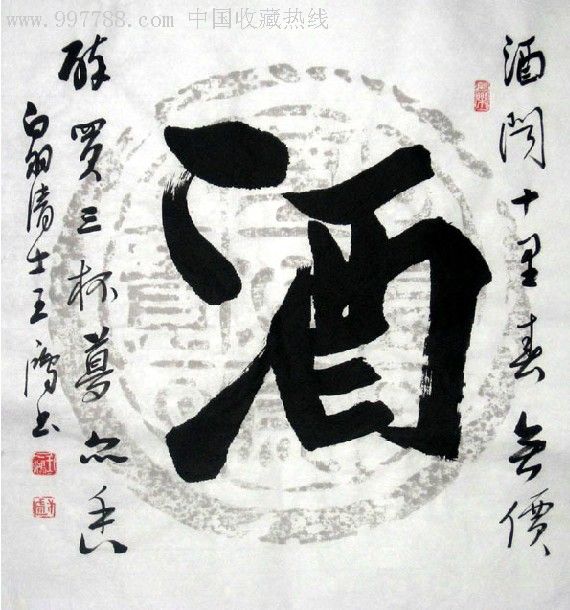 www.997788.com 中国收藏热线
酒
酒闻十里春无價
醉買三杯夢亦香
白翁清士王鴻书